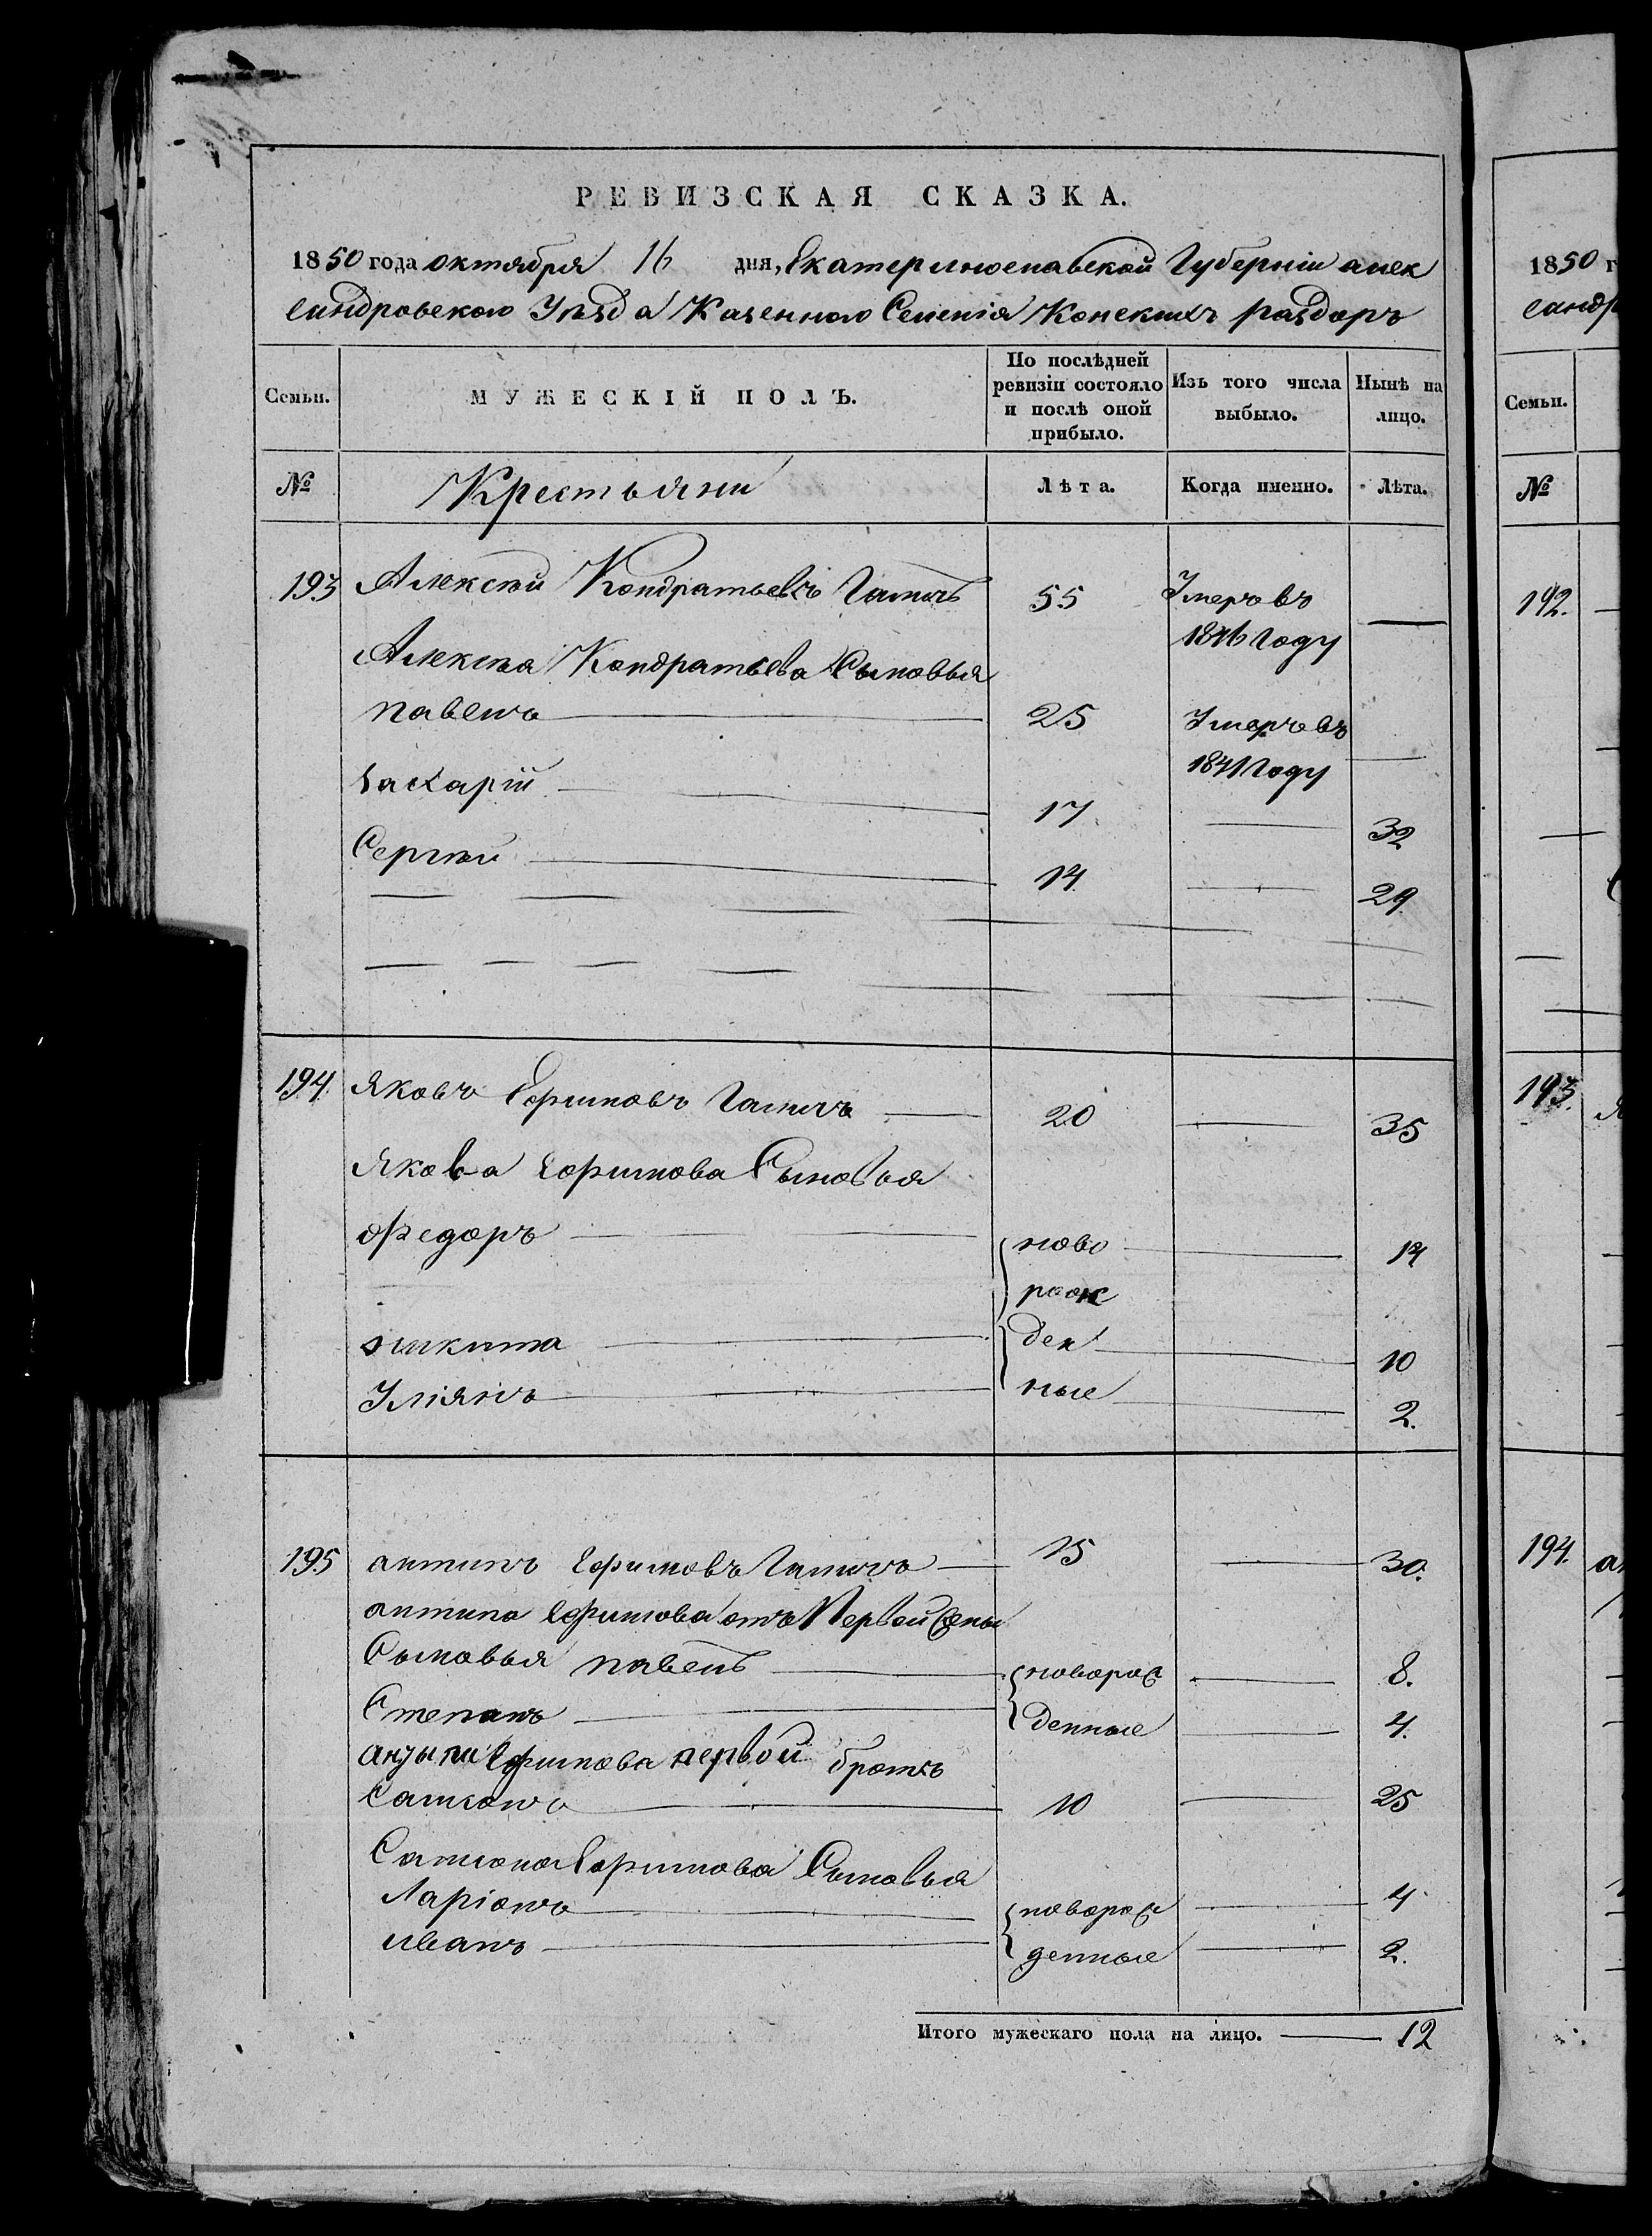 РЕВИЗСКАЯ СКАЗКА.
1850 года октября 16 дня, Екатериносла​вской Губерніи алек
сандровского Уѣзда Казенного Селенія Конскихъ раздоръ
Семьи.
МУЖЕСКІЙ ПОЛЪ.
По послѣдней ревизіи состояло и послѣ оной прибыло.
Изъ того числа выбыло.
Нынѣ на лицо.
№
Крестьяни
Лѣта.
Когда именно.
Лѣта.
193 Алексѣй Кондратьевъ 55 Умеръ въ —
1846 Году
Алексѣя Кондратьева Сыновья
павелъ 25 Умеръ въ
1841 Году —
Захарій 17 — 32
Сергѣй 14 — 29
194 Яковъ Ефимовъ 20 — 35
Якова Ефимова Сыновья
Федоръ ново — 14
рож
никита ден — 10
Уліянъ ные — 2.
195 антипъ Ефимовъ 15 — 30.
антипа Ефимова отъ Первой жены
Сыновья павелъ новорож — 8.
Степанъ денные — 4.
Ефимова первой братъ
Самсонъ 10 — 25
Самсона Ефимова Сыновья
Ларіонъ новорож — 4
иванъ денные — 2.
Итого мужескаго пола на лицо. — 12
1850 г
сандр
Семьи.
№
192.
193.
194. ан